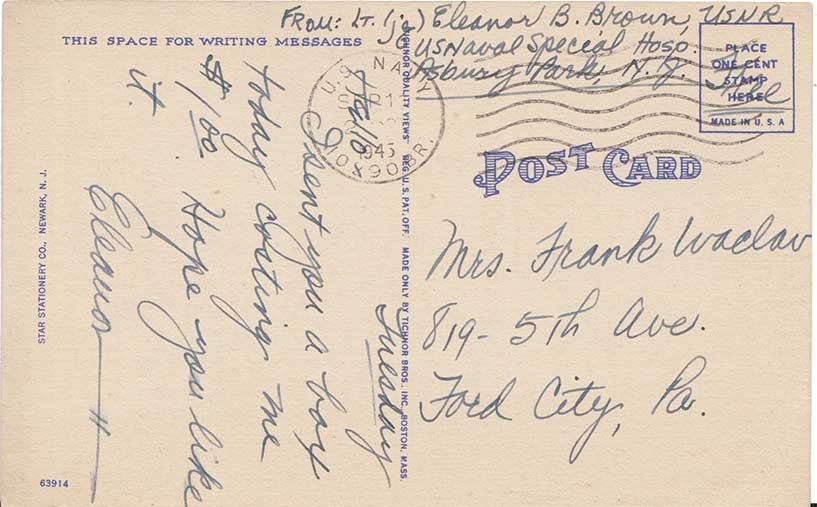 FROM: Lt. (jg) Eleanor B. Brown, USNR
US Naval Special Hosp.
Asbury Park, N.J.
Free
THIS SPACE FOR WRITING MESSAGES
PLACE
ONE CENT
STAMP
HERE
MADE IN U.S.A
U.S. NAVY
1945
10890 BR.
POST CARD
Mrs. Frank Waclav
819 - 5th Ave.
Ford City, Pa.
"TICHNOR QUALITY VIEWS" REG. U.S. PAT. OFF. MADE ONLY BY TICHNOR BROS. INC. BOSTON, MASS.
Tuesday
Hello
I sent you a box
today costing me
$1.00. Hope you like
it.
Eleanor
STAR STATIONERY CO., NEWARK, N. J.
63914